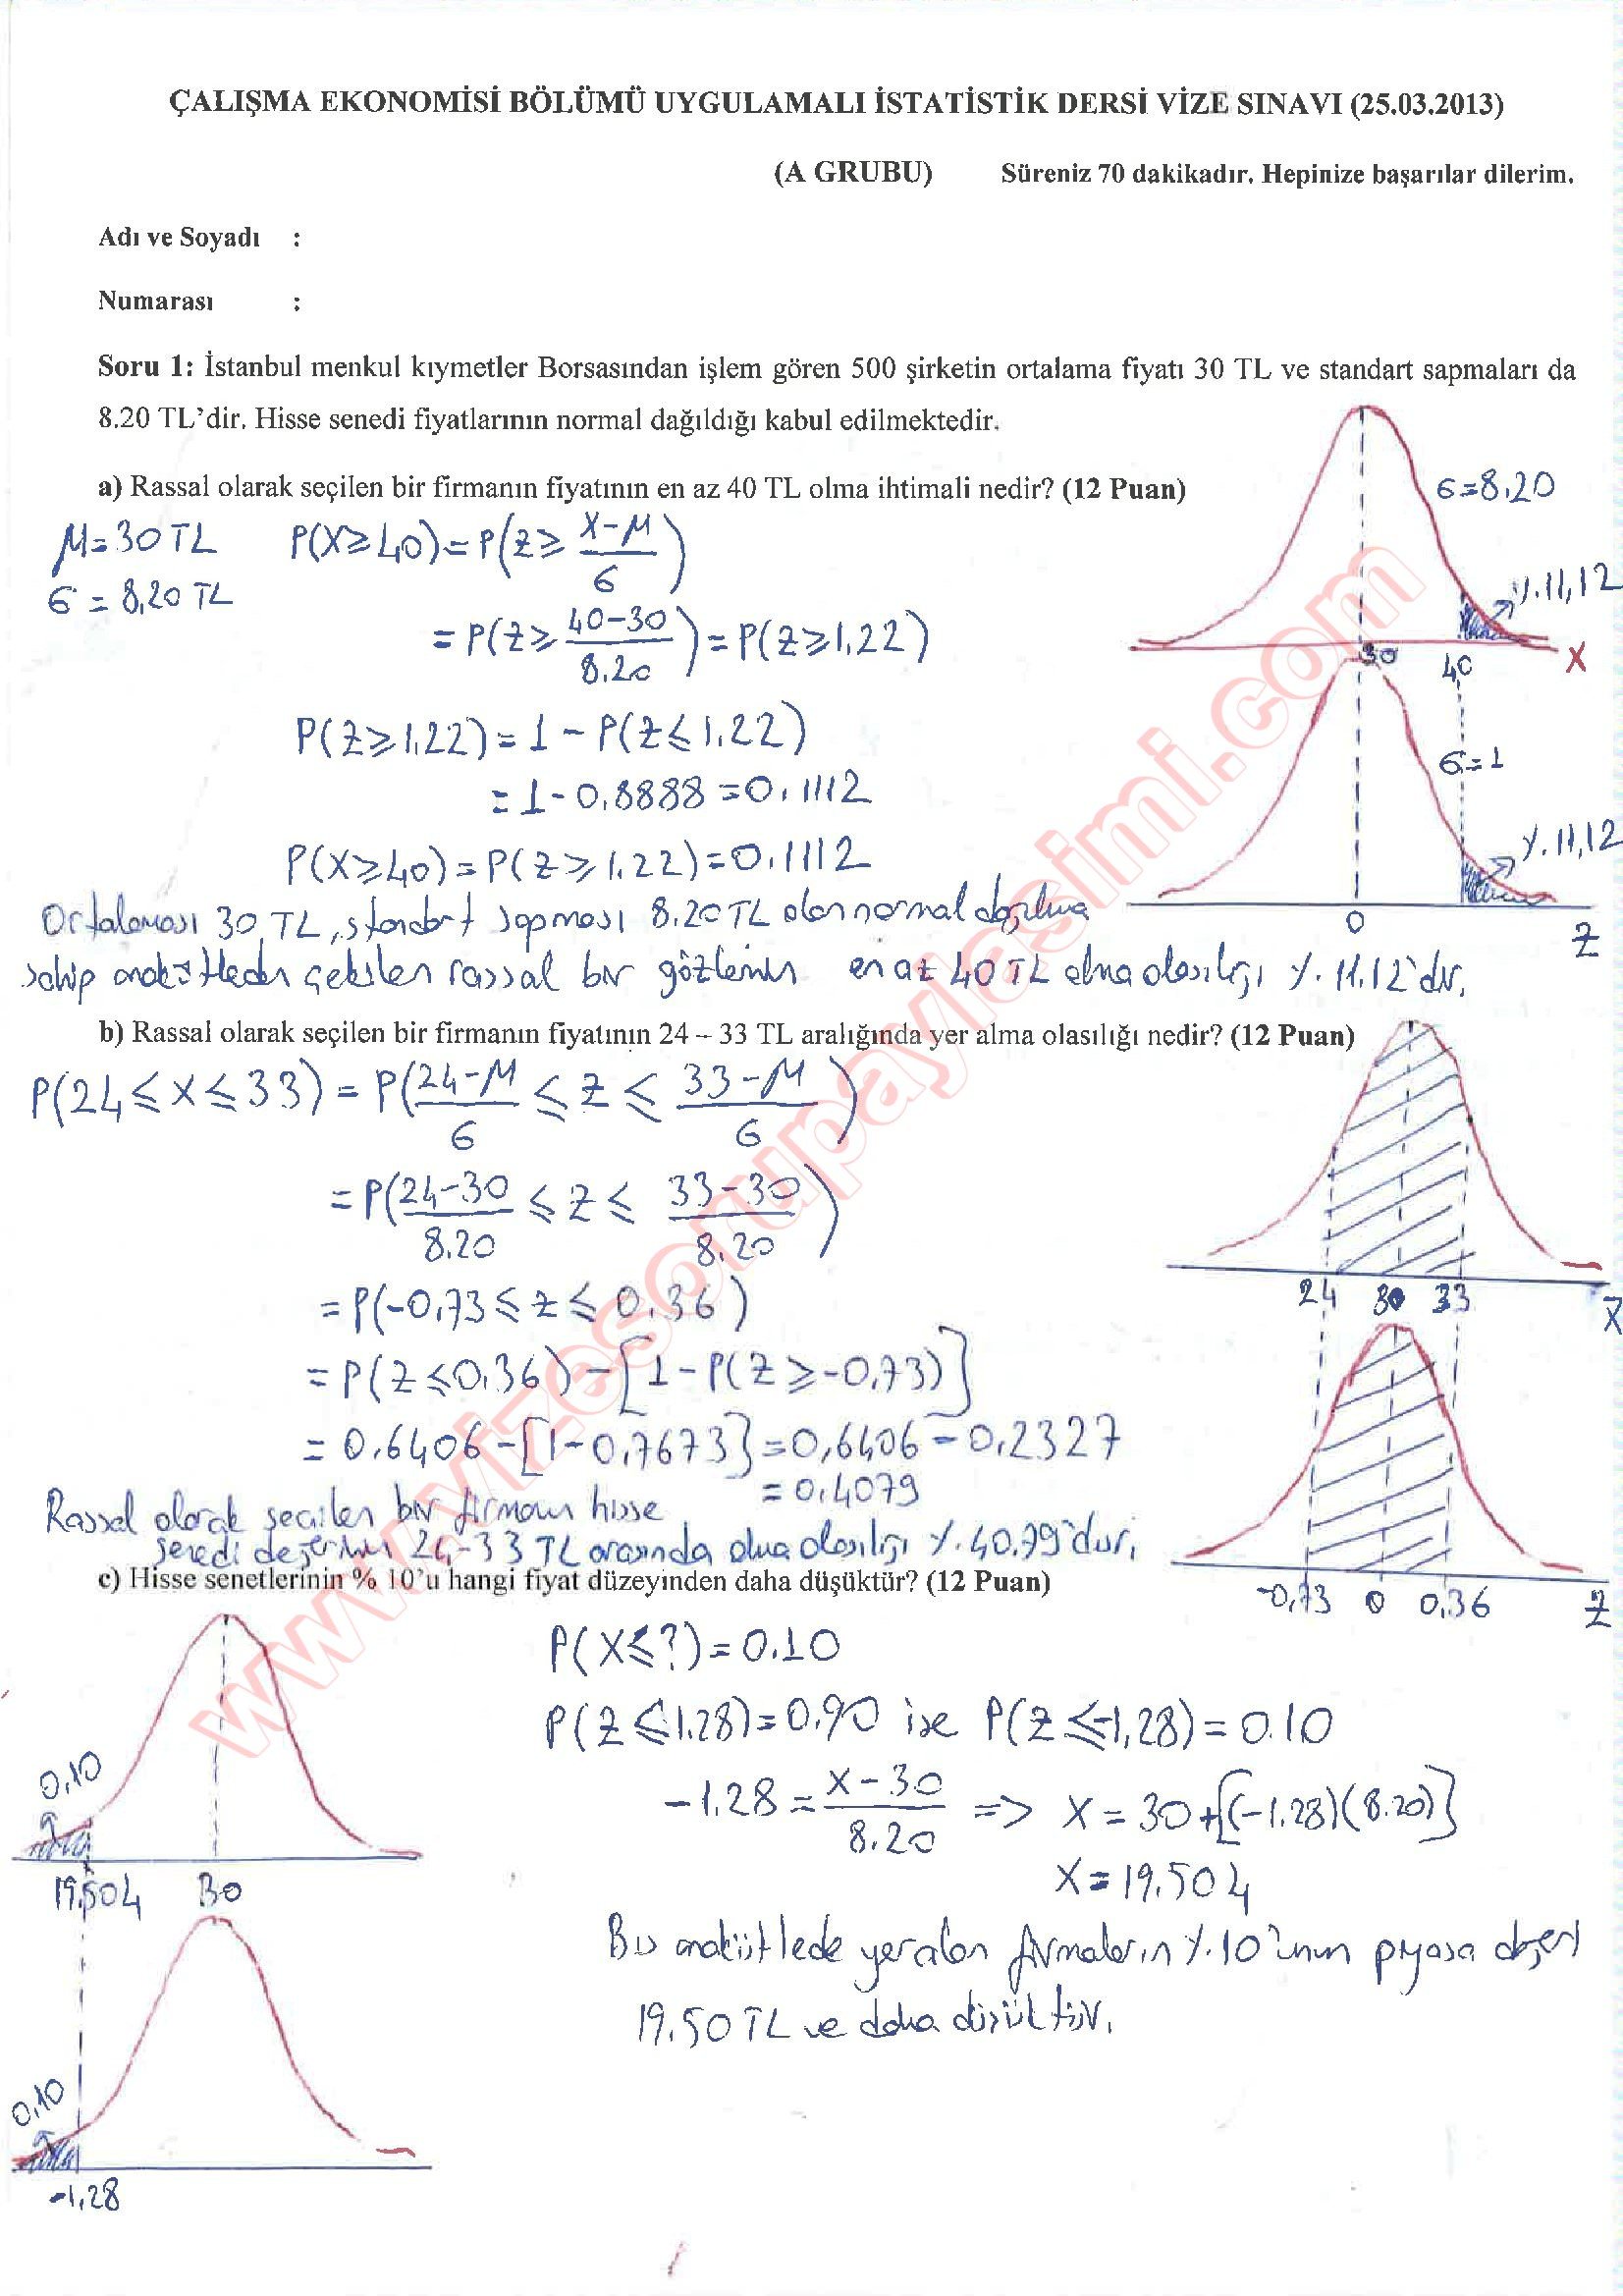 ÇALIŞMA EKONOMİSİ BÖLÜMÜ UYGULAMALI İSTATİSTİK DERSİ VİZE SINAVI (25.03.2013)
(A GRUBU) Süreniz 70 dakikadır. Hepinize başarılar dilerim.
Adı ve Soyadı :
Numarası :
Soru 1: İstanbul menkul kıymetler Borsasından işlem gören 500 şirketin ortalama fiyatı 30 TL ve standart sapmaları da
8.20 TL'dir. Hisse senedi fiyatlarının normal dağıldığı kabul edilmektedir.
a) Rassal olarak seçilen bir firmanın fiyatının en az 40 TL olma ihtimali nedir? (12 Puan)
σ=8.20
μ=30 TL P(X≥40)=P(Z≥ (X-μ)/σ)
σ = 8,20 TL
%.11,12
= P(Z≥ (40-30)/8.20) = P(Z≥1,22)
30 40 X
P(Z≥1.22) = 1 - P(Z≤1.22)
σ=1
= 1-0.8888 = 0.1112
%.11,12
P(X≥40) = P(Z≥1.22)=0.1112
0 Z
Ortalaması 30 TL, standart sapması 8.20 TL olan normal dağılıma
sahip anakütleden çekilen rassal bir gözlemin en az 40 TL olma olasılığı %.11.12'dir.
b) Rassal olarak seçilen bir firmanın fiyatının 24 – 33 TL aralığında yer alma olasılığı nedir? (12 Puan)
P(24≤X≤33) = P((24-μ)/σ ≤ Z ≤ (33-μ)/σ)
= P((24-30)/8.20 ≤ Z ≤ (33-30)/8.20)
24 30 33 X
= P(-0,73 ≤ Z ≤ 0.36)
= P(Z≤0.36) - [1-P(Z≥-0.73)]
= 0.6406-[1-0.7673] = 0,6406 - 0.2327
= 0.4079
Rassal olarak seçilen bir firmanın hisse
senedi değerinin 24-33 TL arasında olma olasılığı %.40.79'dur.
-0,73 0 0,36 Z
c) Hisse senetlerinin % 10'u hangi fiyat düzeyinden daha düşüktür? (12 Puan)
P(X≤?) = 0.10
P(Z≤1.28)=0.90 ise P(Z≤-1,28) = 0.10
0,10
-1.28 = (X-30)/8.20 => X = 30+[(-1.28)(8.20)]
X = 19.504
19.504 30
Bu anakütlede yer alan firmaların %.10'unun piyasa değeri
19.50 TL ve daha düşüktür.
0,10
-1,28
www.vizesorupaylesimi.com